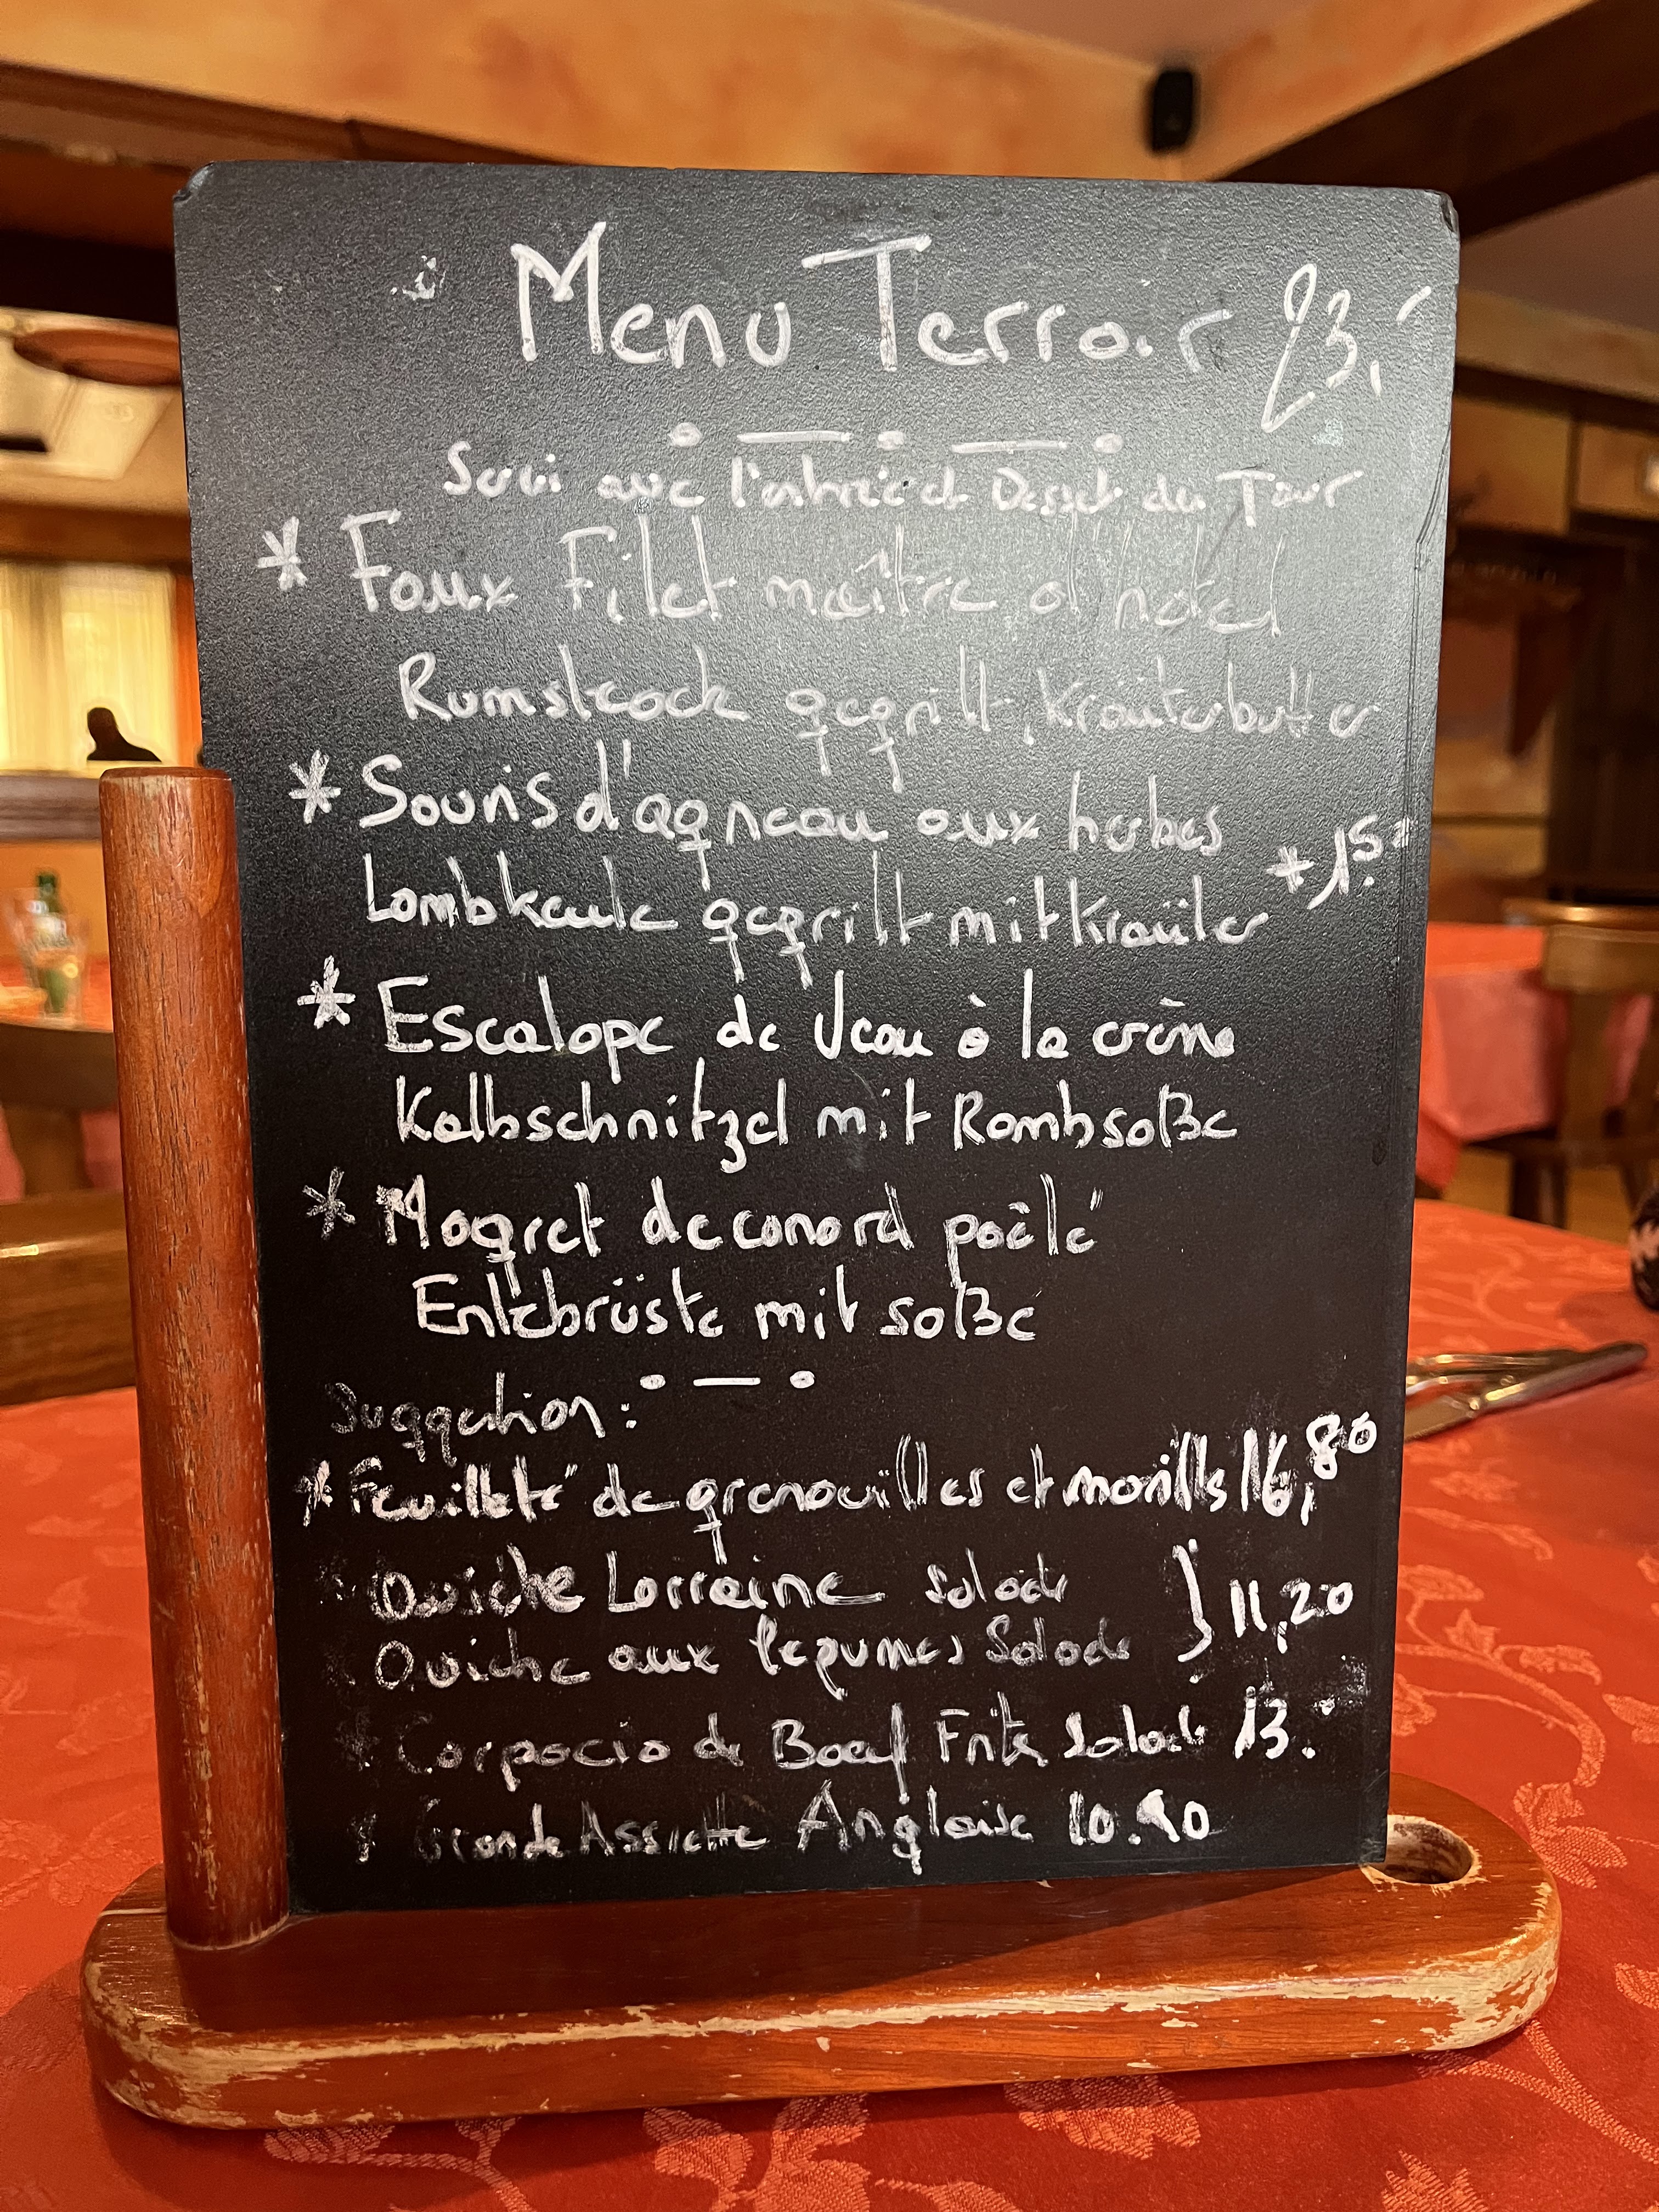 Menu Terroir 23,-
Servi avec l'entrée et Dessert du Jour
* Faux Filet maître d'hôtel
Rumsteack gegrillt, Kraüterbutter
* Souris d'agneau aux herbes
Lambkeule gegrillt mit Kraüter
* Escalope de Veau à la crème
Kalbschnitzel mit Rambsoße
* Magret de canard poêlé
Entebrüste mit soße
Suggestion :
* Feuilleté de grenouilles et morilles 16,80
Quiche Lorraine Salade } 11,20
Quiche aux légumes Salade
* Carpacio de Boeuf Frite Salade 13.-
Grande Assiette Anglaise 10.90